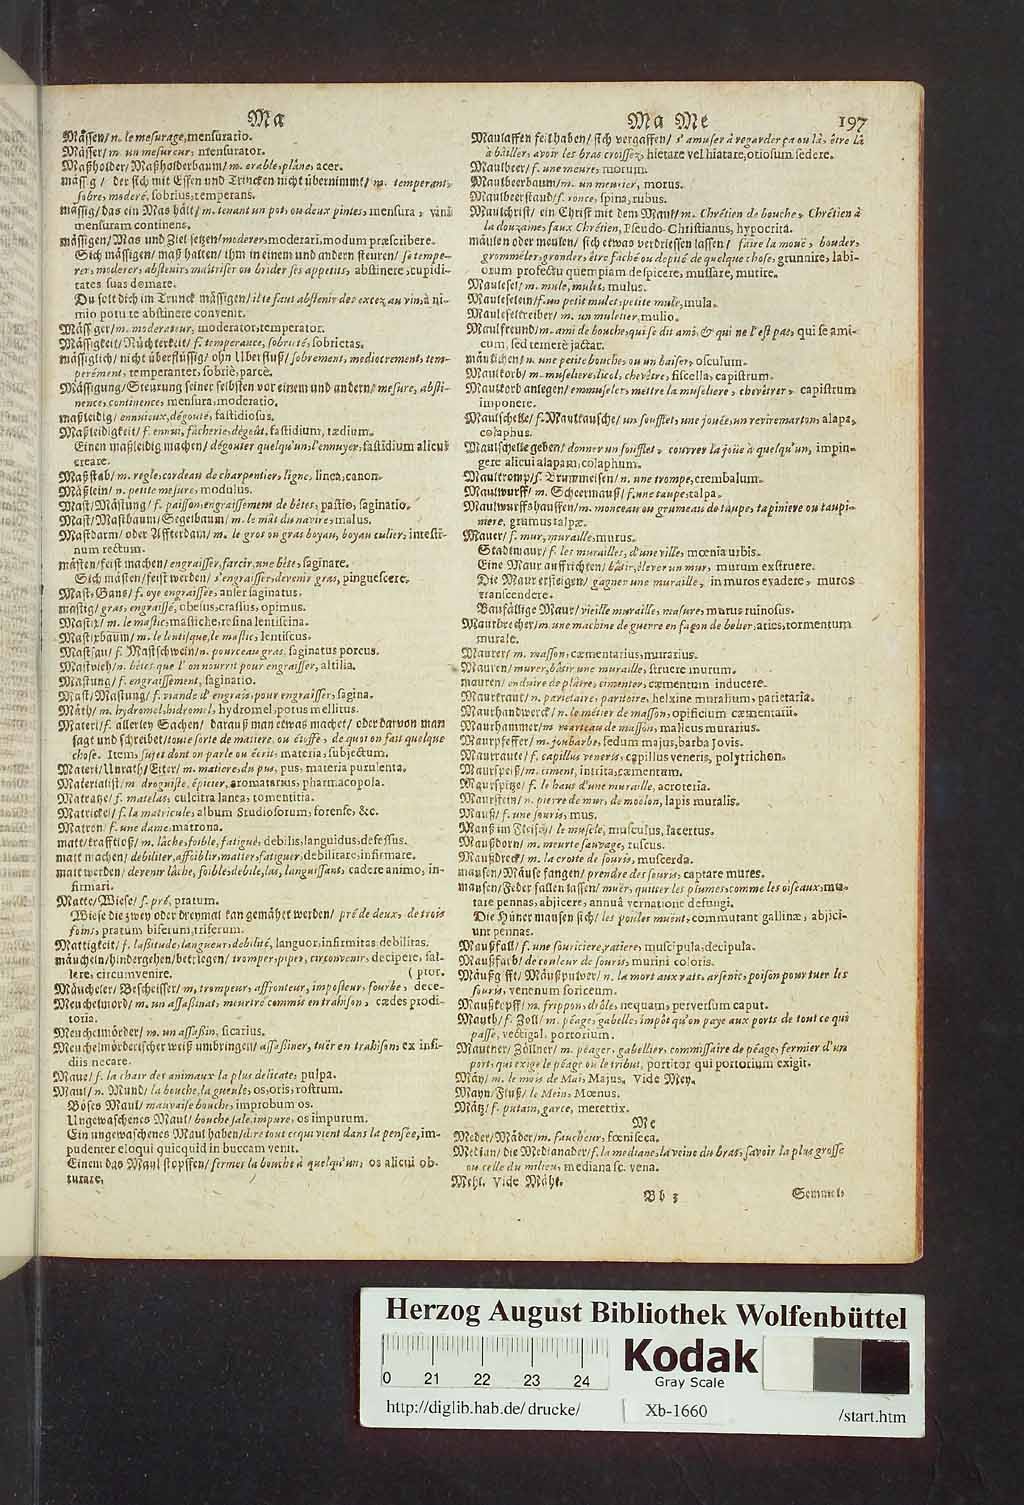 Ma
Mässen/ n. le mesurage, mensuratio.
Mässer/ m. un mesureur, mensurator.
Maßholder/ Maßholderbaum/ m. erable, plâne, acer.
mässig/ der sich mit Essen und Trincken nicht übernimmt/ m. temperant,
sobre, moderé, sobrius, temperans.
mässig/ das ein Mas hält/ m. tenant un pot, ou deux pintes, mensurā, vanā
mensuram continens.
mässigen/ Mas und Ziel setzen/ moderer, moderari, modum præscribere.
Sich mässigen/ maß halten/ ihm in einem und andern steuren/ se tempe-
rer, moderer, abstenir, maîtriser ou brider ses appetits, abstinere, cupidi-
tates suas domare.
Du solt dich im Trunck mässigen/ il te faut abstenir des excez au vin, à ni-
mio potu te abstinere convenit.
Mässiger/ m. moderateur, moderator, temperator.
Mässigkeit/ Nüchterkeit/ f. temperance, sobrieté, sobrietas.
mässiglich/ nicht überflüssig/ ohn Uberfluß/ sobrement, mediocrement, tem-
perément, temperanter, sobriè, parcè.
Mässigung/ Steurung seiner selbsten vor einem und andern/ mesure, absti-
nence, continence, mensura, moderatio.
maßleidig/ ennuieux, dégouté, fastidiosus.
Maßleidigkeit/ f. ennui, fâcherie, dégoût, fastidium, tædium.
Einen maßleidig machen/ dégouter quelqu'un, l'ennuyer, fastidium alicui
creare.
Maßstab/ m. regle, cordeau de charpentier, ligne, linea, canon.
Mäßlein/ n. petite mesure, modulus.
Mast/ Mästung/ f. paisson, engraissement de bêtes, pastio, saginatio.
Mast/ Mastbaum/ Segelbaum/ m. le mât du navire, malus.
Mastdarm/ oder Affterdarm/ m. le gros ou gras boyau, boyau culier, intesti-
num rectum.
mästen/ feist machen/ engraisser, farcir, une bête, saginare.
Sich mästen/ feist werden/ s'engraisser, devenir gras, pinguescere.
Mast-Gans/ f. oye engraissée, anser saginatus.
mastig/ gras, engraissé, obesus, crassus, opimus.
Mastix/ m. le mastic, mastiche, resina lentiscina.
Mastixbaum/ m. le lentisque, le mastic, lentiscus.
Mastsau/ f. Mastschwein/ n. pourceau gras, saginatus porcus.
Mastvieh/ n. bêtes que l'on nourrit pour engraisser, altilia.
Mastung/ f. engraissement, saginatio.
Mast/ Mastung/ f. viande d'engrais, pour engraisser, sagina.
Mäth/ m. hydromel, hidromel, hydromel, potus mellitus.
Materi/ f. allerley Sachen/ darauß man etwas machet/ oder darvon man
sagt und schreibet/ toute sorte de matiere, ou étoffe, de quoi on fait quelque
chose. Item, sujet dont on parle ou écrit, materia, subjectum.
Materi/ Unrath/ Eiter/ m. matiere, du pus, pus, materia purulenta.
Materialist/ m. droguiste, épicier, aromatarius, pharmacopola.
Matratze/ f. matelas, culcitra lanea, tomentitia.
Matrickel/ f. la matricule, album Studiosorum, forense, &c.
Matron/ f. une dame, matrona.
matt/ krafftloß/ m. lâche, foible, fatigué, debilis, languidus, defessus.
matt machen/ débiliter, affoiblir, matter, fatiguer, debilitare, infirmare.
matt werden/ devenir lâche, foible, debile, las, languissant, cadere animo, in-
firmari.
Matte/ Wiese/ f. pré, pratum.
Wiese die zwey oder dreymal kan gemähet werden/ pré de deux, de trois
foins, pratum biserum, triserum.
Mattigkeit/ f. lassitude, langueur, debilité, languor, infirmitas debilitas.
mäucheln/ hindergehen/ betriegen/ tromper, piper, circonvenir, decipere, fal-
lere, circumvenire. ( ptor.
Mäucheler/ Bescheisser/ m, trompeur, affronteur, imposteur, fourbe, dece-
Meuchelmord/ m. un assassinat, meurtre commis en trahison, cædes prodi-
toria.
Meuchelmörder/ m. un assassin, sicarius.
Meuchelmörderischer weiß umbringen/ assassiner, tuër en trahison, ex insi-
diis necare.
Maue/ f. la chair des animaux la plus delicate, pulpa.
Maul/ n. Mund/ la bouche, la gueule, os, oris, rostrum.
Böses Maul/ mauvaise bouche, improbum os.
Ungewaschenes Maul/ bouche sale, impure, os impurum.
Ein ungewaschenes Maul haben/ dire tout ce qui vient dans la pensée, im-
pudenter eloqui quicquid in buccam venit.
Einem das Maul stopffen/ fermer la bouche à quelqu'un, os alicui ob-
turare.
Ma Me 197
Maulaffen feil haben/ sich vergaffen/ s'amuser à regarder ça ou là, être là
à bâiller, avoir les bras croissez, hietare vel hiatare, otiosum sedere.
Maulbeer/ f. une meure, morum.
Maulbeerbaum/ m. un meurier, morus.
Maulbeerstaud/ f. ronce, spina, rubus.
Maulchrist/ ein Christ mit dem Maul/ m. Chrétien de bouche, Chrétien à
la douzaine, faux Chrétien, Pseudo-Christianus, hypocrita.
mäulen oder meulen/ sich etwas verdriessen lassen/ faire la mouë, bouder,
grommeler, gronder, être fâché ou depité de quelque chose, grunnire, labi-
orum profectu quempiam despicere, mussare, mutire.
Maulesel/ m. mule, mulet, mulus.
Mauleselein/ f. un petit mulet, petite mule, mula.
Mauleseltreiber/ m. un muletier, mulio.
Maulfreund/ m. ami de bouche, qui se dit ami, & qui ne l'est pas, qui se ami-
cum, sed temerè jactat.
mäulichen/ n. une petite bouche, ou un baiser, osculum.
Maulkorb/ m. museliere, licol, chevêtre, fiscella, capistrum.
Maulkorb anlegen/ emmuseler, mettre la museliere, chevêtrer, capistrum
imponere.
Maulschelle/ f. Maultausche/ un soufflet, une jouée, un reviremarton, alapa,
colaphus.
Maulschelle geben/ donner un soufflet, couvrer la jouë à quelqu'un, impin-
gere alicui alapam, colaphum.
Maultromp/ f. Brummeisen/ n. une trompe, crembalum.
Maulwurff/ m. Scheermauß/ f. une taupe, talpa.
Maulwurffshauffen/ m. monceau ou grumeau de taupe, tapiniere ou taupi-
niere, grumus talpæ.
Mauer/ f. mur, muraille, murus.
Stadtmaur/ f. les murailles, d'une ville, mœnia urbis.
Eine Maur auffrichten/ bâtir, élever un mur, murum exstruere.
Die Maur ersteigen/ gagner une muraille, in muros evadere, muros
transcendere.
Baufällige Maur/ vieille muraille, masure, murus ruinosus.
Maurbrecher/ m. une machine de guerre en façon de belier, aries, tormentum
murale.
Maurer/ m. masson, cæmentarius, murarius.
Mauren/ murer, bâtir une muraille, struere murum.
mauren/ enduire de plâtre, cimenter, cæmentum inducere.
Maurkraut/ n. parietaire, paritoire, helxine muralium, parietaria.
Maurhandwerck/ n. le métier de masson, opificium cæmentarii.
Maurhammer/ m. marteau de masson, malleus murarius.
Maurpfeffer/ m. joubarbe, sedum majus, barba Jovis.
Maurraute/ f. capillus veneris, capillus veneris, polytrichon.
Maurspeiß/ m. ciment, intrita, cæmentum.
Maurspitze/ f. le haut d'une muraille, acroteria.
Maurstein/ n. pierre de mur, de moëlon, lapis muralis.
Mauß/ f. une souris, mus.
Mauß im Fleisch/ le muscle, musculus, lacertus.
Maußdorn/ m. meurte sauvage, ruscus.
Maußdreck/ m. la crotte de souris, muscerda.
mausen/ Mäuse fangen/ prendre des souris, captare mures.
mausen/ Feder fallen lassen/ muër, quitter les plumes, comme les oiseaux, mu-
tare pennas, abjicere, annuâ vernatione defungi.
Die Hüner mausen sich/ les poules muent, commutant gallinæ, abjici-
unt pennas.
Maußfall/ f. une souriciere, ratiere, muscipula, decipula.
Maußfarb/ de couleur de souris, murini coloris.
Mäußgifft/ Mäußpulver/ n. la mort aux rats, arsenic, poison pour tuer les
souris, venenum soriceum.
Maußkopff/ m. frippon, drôle, nequam, perversum caput.
Mauth/ f. Zoll/ m. péage, gabelle, impôt qu'on paye aux ports de tout ce qui
passe, vectigal, portorium.
Mautner/ Zöllner/ m. péager, gabellier, commissaire de péage, fermier d'un
port, qui exige le péage ou le tribut, portitor qui portorium exigit.
Mäy/ m. le mois de Mai, Majus. Vide Mey.
Mayn/ Fluß/ le Mein, Mœnus.
Mätz/ f. putain, garce, meretrix.
Me
Meder/ Mäder/ m. faucheur, fœniseca.
Median/ die Medianader/ f. la mediane, la veine du bras, savoir la plus grosse
ou celle du milieu, mediana sc. vena.
Mehl. Vide Mähl.
Bb 3 Semmel-
Herzog August Bibliothek Wolfenbüttel
0 21 22 23 24
Kodak
Gray Scale
http://diglib.hab.de/drucke/ Xb-1660 /start.htm